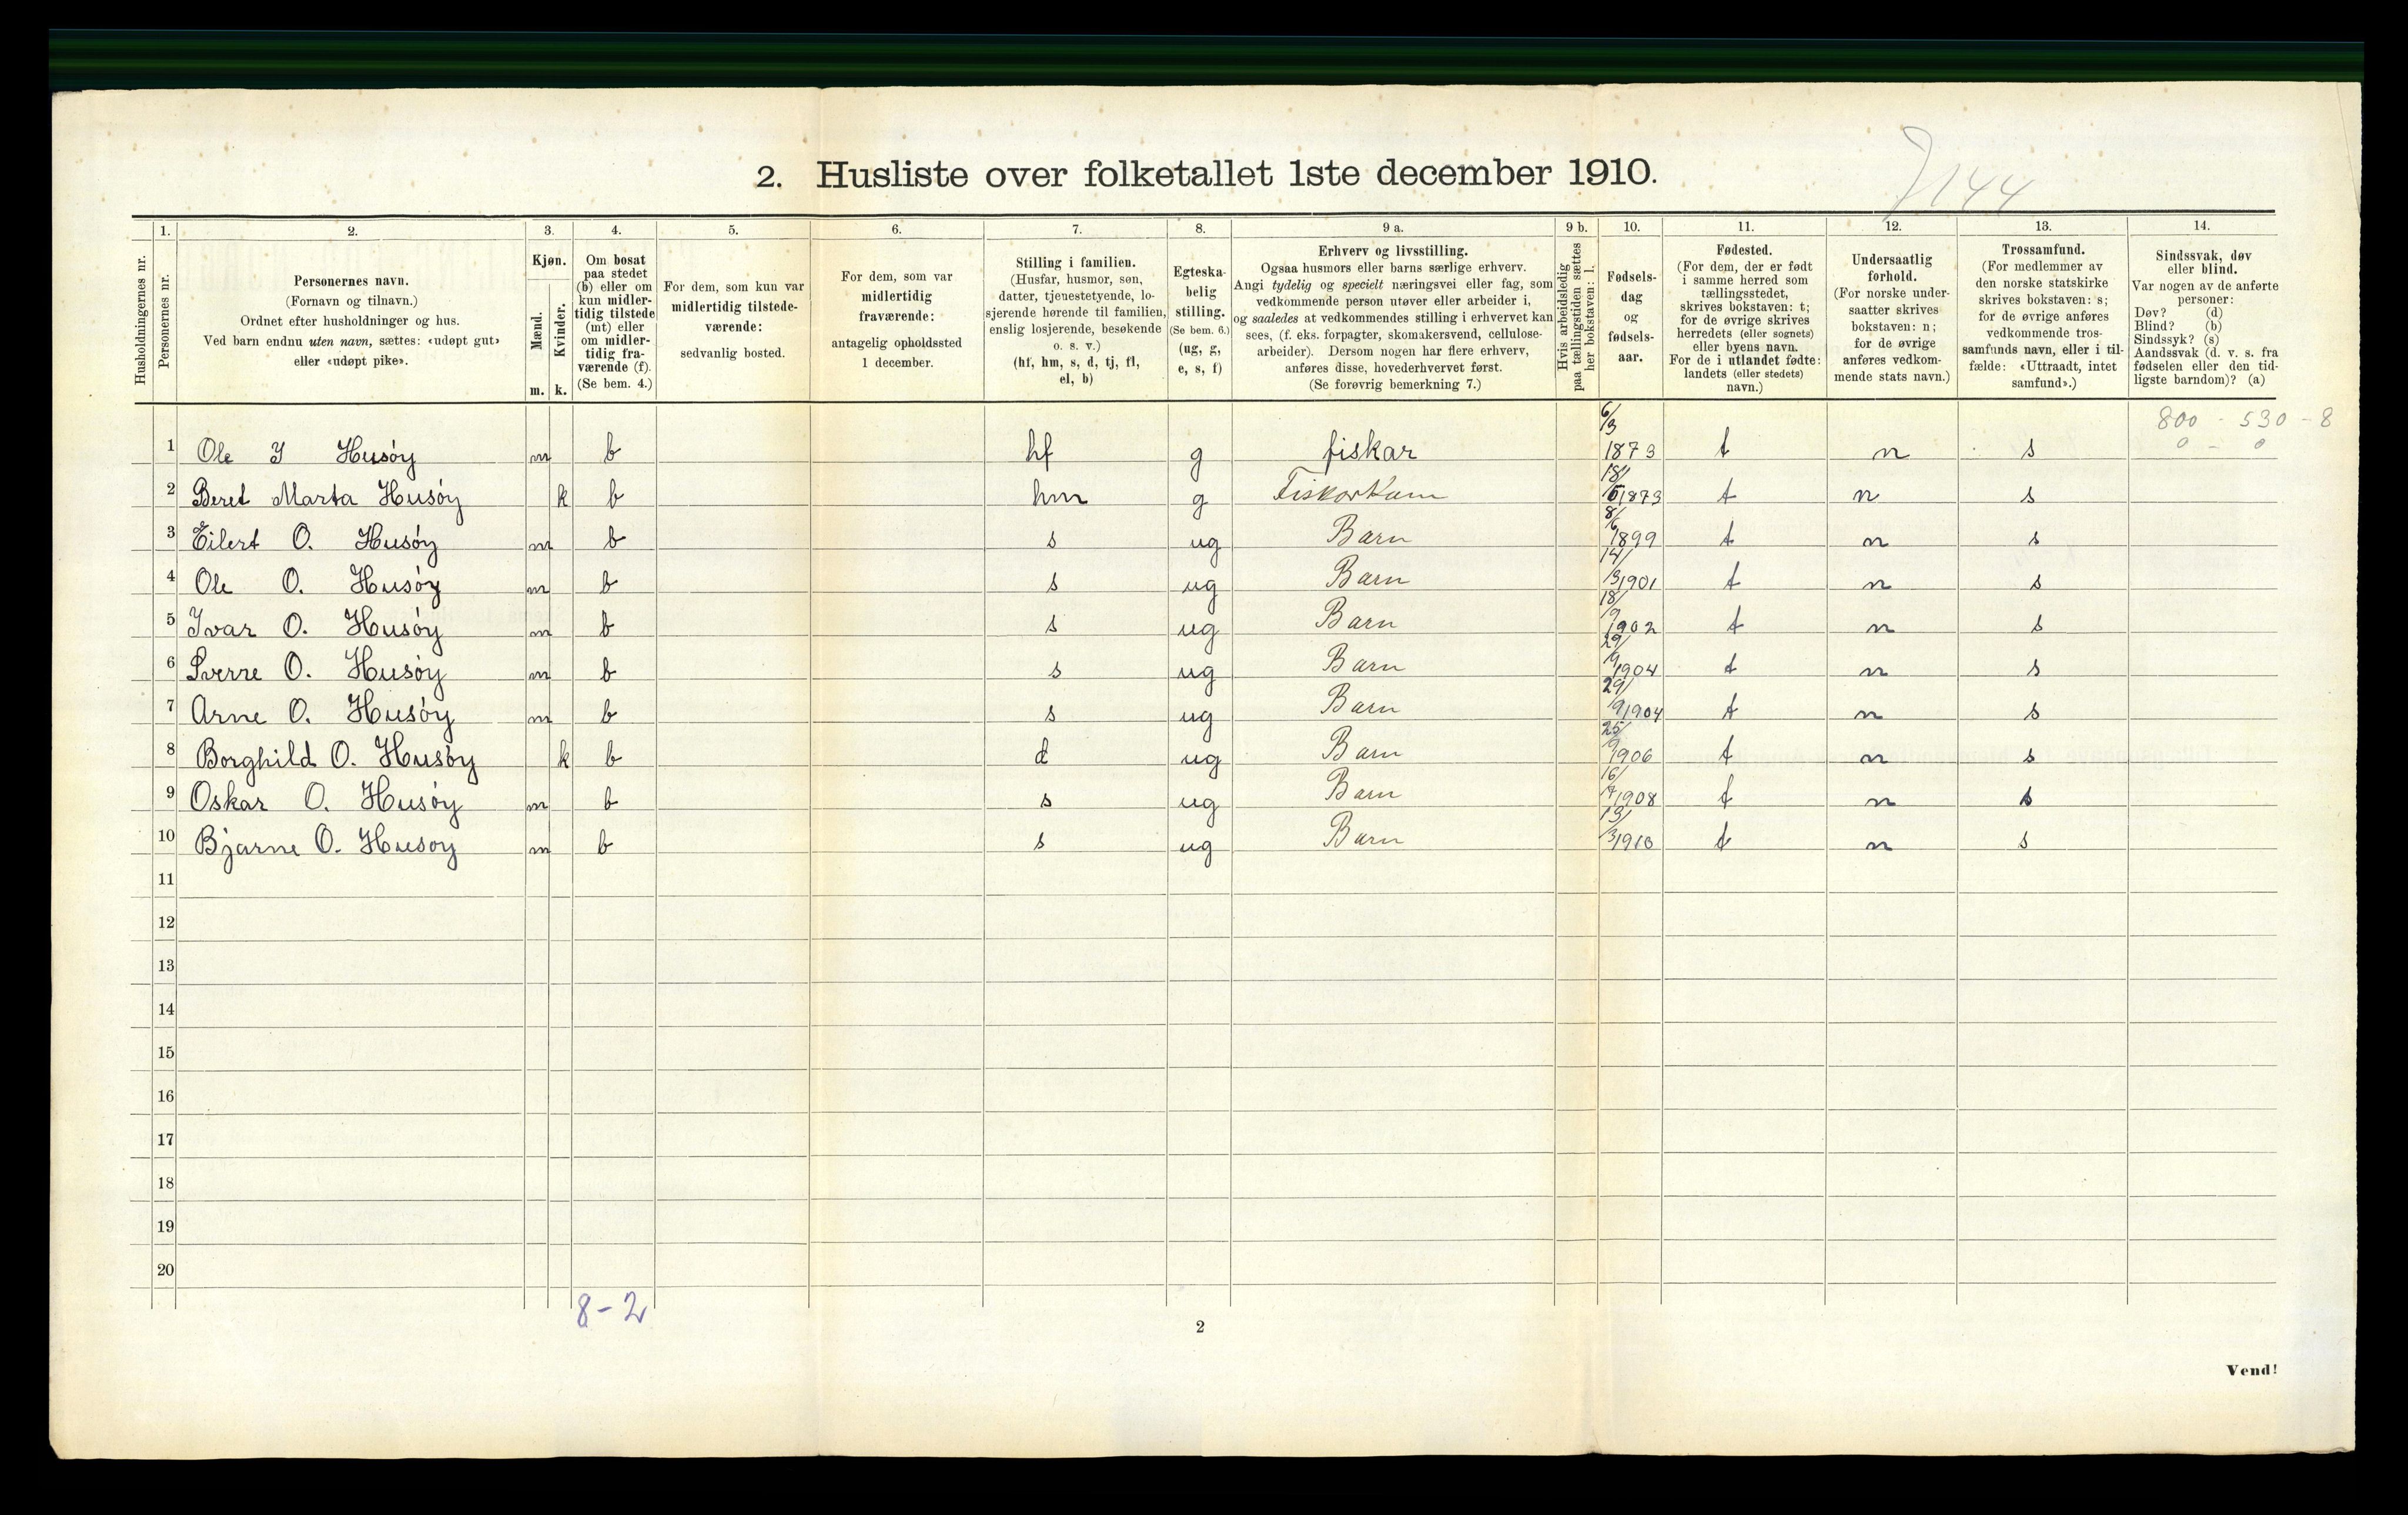 2. Husliste over folketallet 1ste december 1910.
144
Husholdningernes nr.
1.
Personernes nr.
2.
Personernes navn.
(Fornavn og tilnavn.)
Ordnet efter husholdninger og hus.
Ved barn endnu uten navn, sættes: «udøpt gut»
eller «udøpt pike».
3.
Kjøn.
Mænd.
Kvinder.
m. k.
4.
Om bosat
paa stedet
(b) eller om
kun midler-
tidig tilstede
(mt) eller
om midler-
tidig fra-
værende (f).
(Se bem. 4.)
5.
For dem, som kun var
midlertidig tilstede-
værende:
sedvanlig bosted.
6.
For dem, som var
midlertidig
fraværende:
antagelig opholdssted
1 december.
7.
Stilling i familien.
(Husfar, husmor, søn,
datter, tjenestetyende, lo-
sjerende hørende til familien,
enslig losjerende, besøkende
o. s. v.)
(hf, hm, s, d, tj, fl,
el, b)
8.
Egteska-
belig
stilling.
(Se bem. 6.)
(ug, g,
e, s, f)
9 a.
Erhverv og livsstilling.
Ogsaa husmors eller barns særlige erhverv.
Angi tydelig og specielt næringsvei eller fag, som
vedkommende person utøver eller arbeider i,
og saaledes at vedkommendes stilling i erhvervet kan
sees, (f. eks. forpagter, skomakersvend, cellulose-
arbeider). Dersom nogen har flere erhverv,
anføres disse, hovederhvervet først.
(Se forøvrig bemerkning 7.)
9 b.
Hvis arbeidsledig
paa tællingstiden sættes
her bokstaven: l.
10.
Fødsels-
dag
og
fødsels-
aar.
11.
Fødested.
(For dem, der er født
i samme herred som
tællingsstedet,
skrives bokstaven: t;
for de øvrige skrives
herredets (eller sognets)
eller byens navn.
For de i utlandet fødte:
landets (eller stedets)
navn.)
12.
Undersaatlig
forhold.
(For norske under-
saatter skrives
bokstaven: n;
for de øvrige
anføres vedkom-
mende stats navn.)
13.
Trossamfund.
(For medlemmer av
den norske statskirke
skrives bokstaven: s;
for de øvrige anføres
vedkommende tros-
samfunds navn, eller i til-
fælde: «Uttraadt, intet
samfund».)
14.
Sindssvak, døv
eller blind.
Var nogen av de anførte
personer:
Døv? (d)
Blind? (b)
Sindssyk? (s)
Aandssvak (d. v. s. fra
fødselen eller den tid-
ligste barndom)? (a)
800 - 530 - 8
0 - 0
1 Ole I Husøy m b hf g fiskar 6/3 1873 t n s
2 Beret Marta Husøy k b hm g Fiskarkum 18/5 1873 t n s
3 Eilert O. Husøy m b s ug Barn 8/6 1899 t n s
4 Ole O. Husøy m b s ug Barn 14/3 1901 t n s
5 Ivar O. Husøy m b s ug Barn 18/ 1902 t n s
6 Sverre O. Husøy m b s ug Barn 29/9 1904 t n s
7 Arne O. Husøy m b s ug Barn 29/9 1904 t n s
8 Borghild O. Husøy k b d ug Barn 25/9 1906 t n s
9 Oskar O. Husøy m b s ug Barn 16/ 1908 t n s
10 Bjarne O. Husoy m b s ug Barn 13/3 1910 t n s
11
12
13
14
15
16
17
18
19
20
8 - 2
2
Vend!